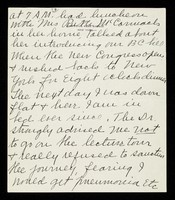 at 7 A.M. had luncheon
with Mrs
in her home. Talked about
her introducing our B.C. bill
when the new Congress opens
& rushed back to New
York for Eight o'clock dinner
The next day I was down
flat & here I am in
bed ever since. The Dr
strongly advised me not
to go on the lecture tour
& really refused to sanction
the journey, fearing I
would get pneumonia etc